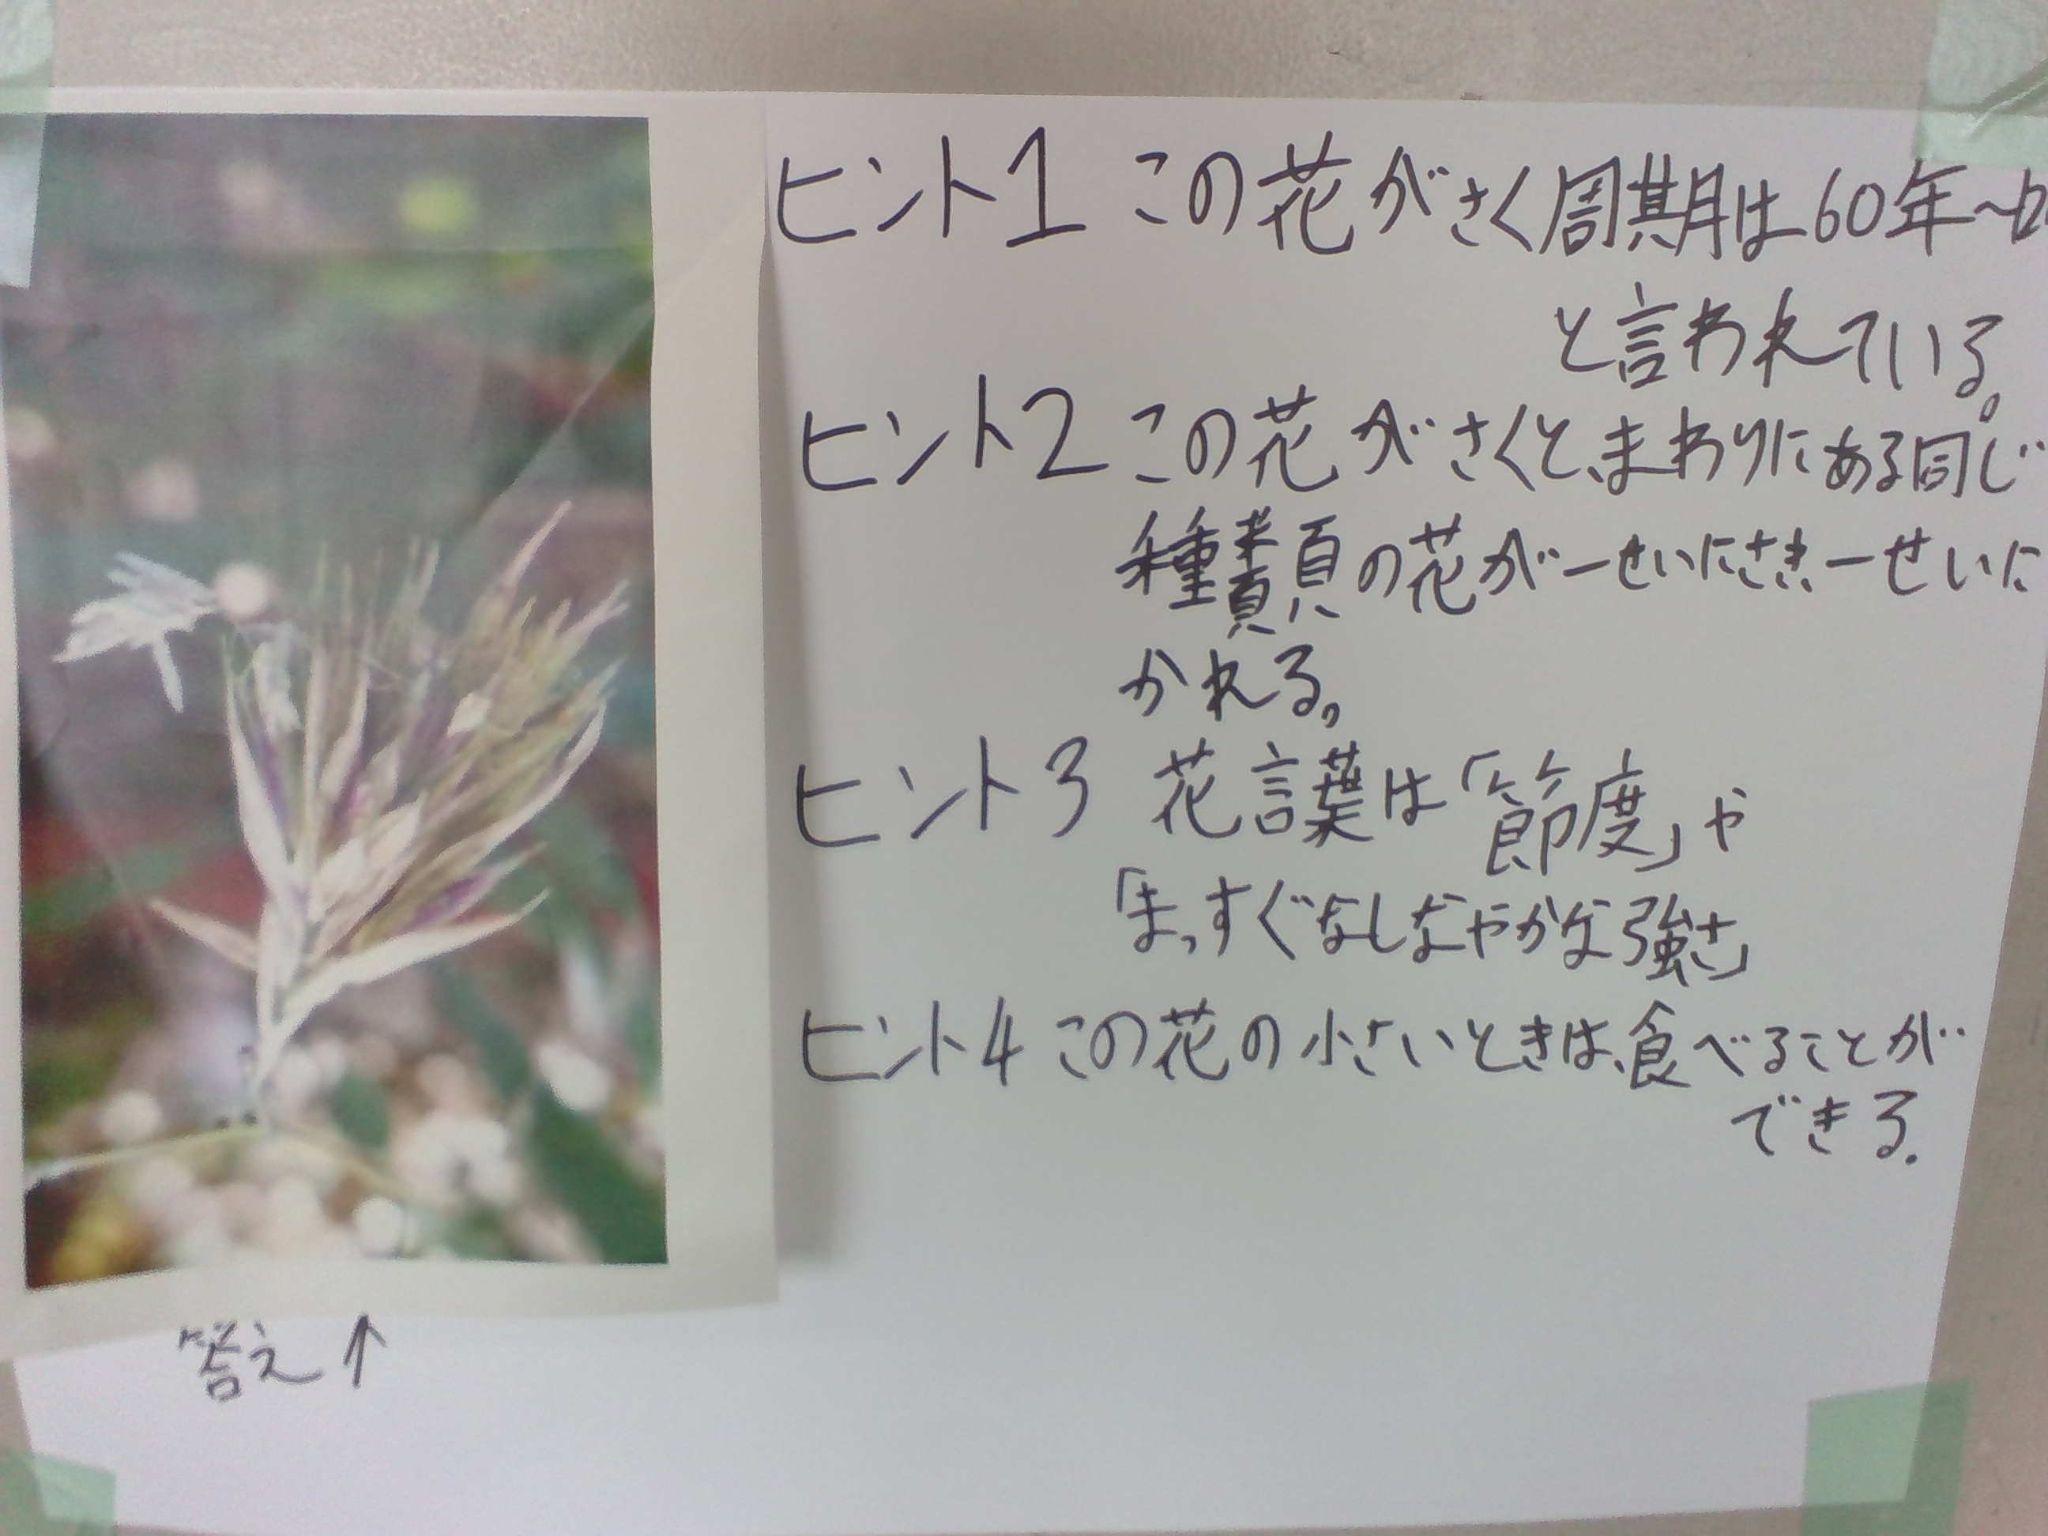 ヒント1 この花がさく周期は60年〜
と言われている。
ヒント2 この花がさくと、まわりにある同じ
種類の花が一せいにさき一せいに
かれる。
ヒント3 花言葉は「節度」や
「まっすぐなしなやかな強さ」
ヒント4 この花の小さいときは、食べることが
できる.
答え↑